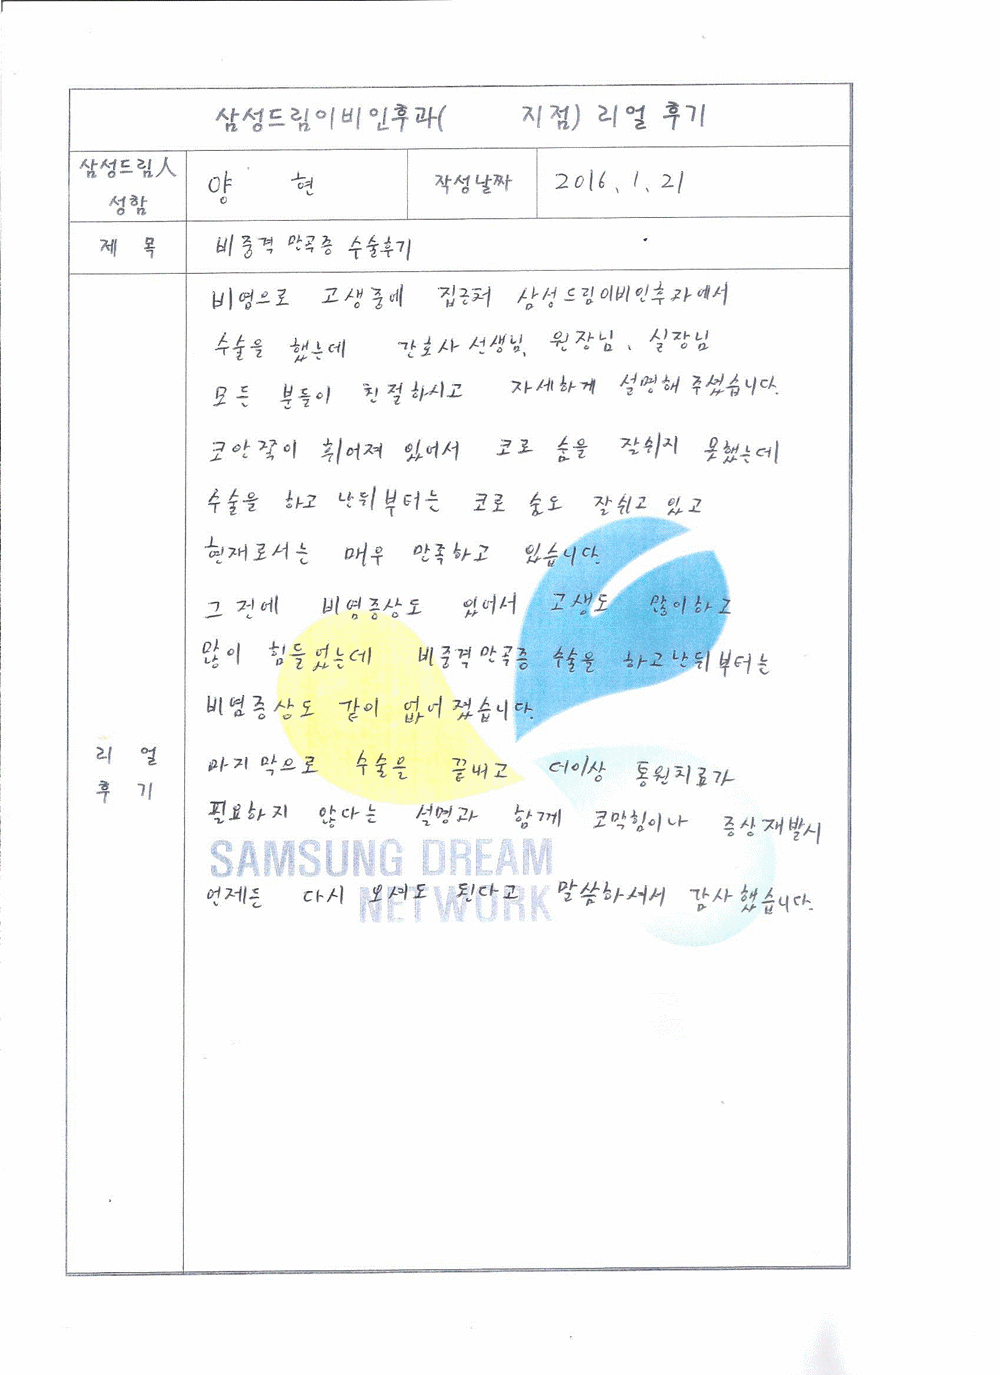 삼성드림이비인후과(      지점) 리얼 후기
삼성드림人
성함
양 현
작성날짜
2016. 1. 21
제 목
비중격 만곡증 수술후기
비염으로 고생중에 집근처 삼성드림이비인후과에서
수술을 했는데 간호사 선생님, 원장님, 실장님
모든 분들이 친절하시고 자세하게 설명해 주셨습니다.
코안쪽이 휘어져 있어서 코로 숨을 잘쉬지 못했는데
수술을 하고 난뒤부터는 코로 숨도 잘쉬고 있고
현재로서는 매우 만족하고 있습니다.
그 전에 비염증상도 있어서 고생도 많이하고
많이 힘들었는데 비중격만곡증 수술을 하고난뒤부터는
비염증상도 같이 없어졌습니다.
마지막으로 수술을 끝내고 더이상 통원치료가
필요하지 않다는 설명과 함께 코막힘이나 증상재발시
언제든 다시 오셔도 된다고 말씀하셔서 감사했습니다.
리 얼
후 기
SAMSUNG DREAM
NETWORK